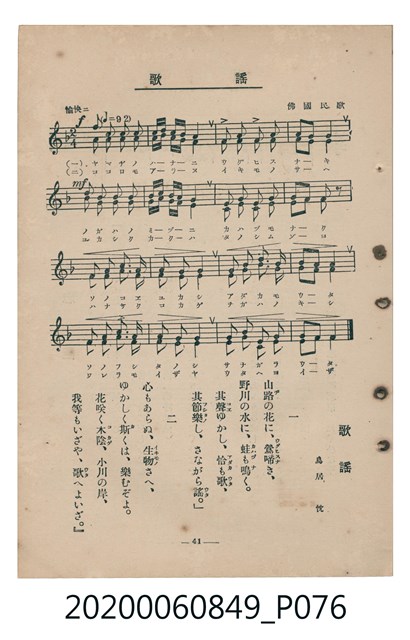 歌謡
愉快ニ
(♩=92)
佛國民歌
f
(一)、ヤマヂノ ハーナニ ウグヒス ナーキ
(二)、ココロモ アーラヌ イキモノ サーヘ
mf
ノガハノ ミーヅニ カハヅモ ナーク
ユカシク カークハ タノシム ゾーヨ
ソノコヱ ユカシ アダカモ ウータ
ソノフシ タノシ サナガラ ウータヨ
歌謡
鳥居 忱
一
山路の花に、鶯啼き、
野川の水に、蛙も鳴く。
其聲ゆかし、恰も歌、
其節樂し、さながら謠。」
二
心もあらぬ、生物さへ、
ゆかしく斯くは、樂むぞよ。
花咲く木陰、小川の岸、
我等もいざや、歌へよいざ。』
—41—
20200060849_P076